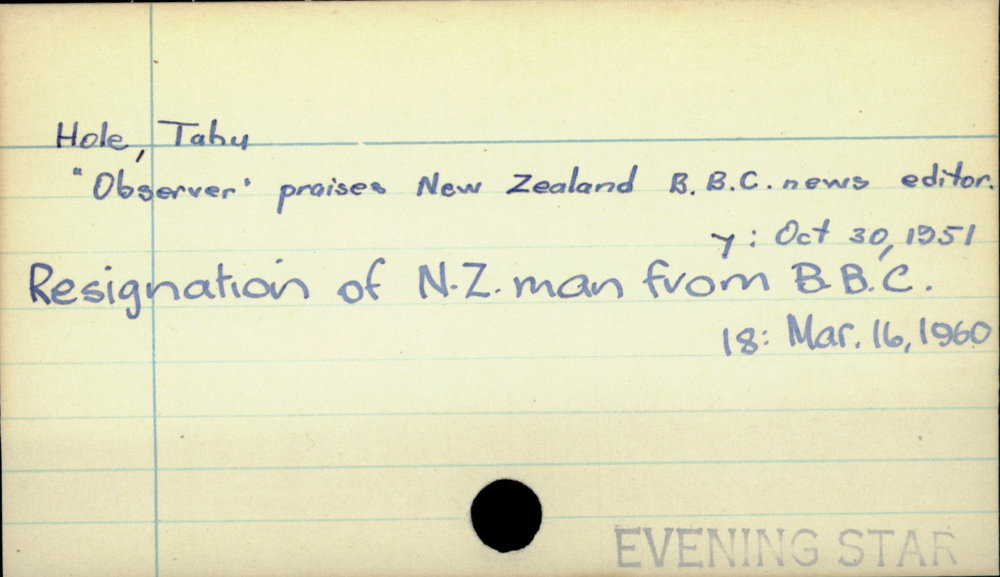 Hole, Tahu
"Observer' praises New Zealand B.B.C. news editor.
7: Oct 30, 1951
Resignation of N.Z. man from B.B.C.
18: Mar. 16, 1960
EVENING STAR